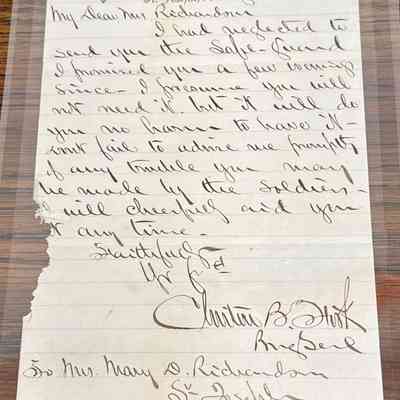 My Dear Mrs Richardson
I had neglected to
send you the Safe-Guard
I promised you a few evenings
since - I presume you will
not need it. but it will do
you no harm to have it -
wont fail to advise me promptly
if any trouble you may
be made by the Soldiers -
I will cheerfully aid you
at any time.
Faithfully
Yr
Clinton B. Fisk
Brig Genl
To Mrs. Mary D. Richardson
St Joseph